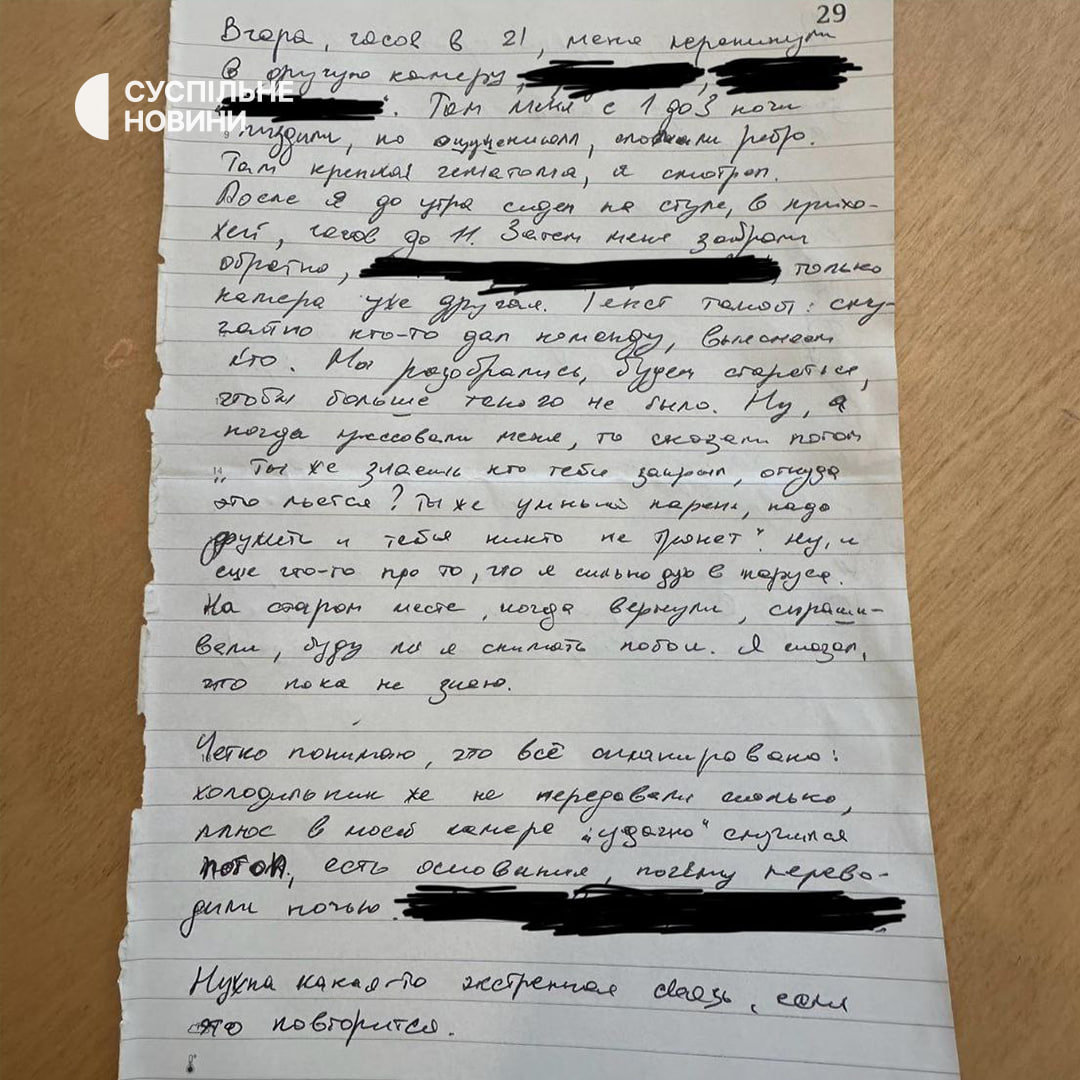 29
Вчора, часов в 21, меня перекинули
в другую камеру,
СУСПІЛЬНЕ
НОВИНИ
Там меня с 1 до 3 ночи
пиздили, по ощущениям, сломали ребро.
Там крепкая гематома, я смотрел.
После я до утра сидел на стуле, в прихо-
жей, часов до 11. Затем меня забрали
обратно, только
камера уже другая. Текст такой: слу-
чайно кто-то дал команду, выясняем
кто. Мы разобрались, будем стараться,
чтобы больше такого не было. Ну, а
когда прессовали меня, то сказали потом
"Ты же знаешь кто тебя закрыл, откуда
это льется? Ты же умный парень, надо
дружить и тебя никто не тронет". Ну, и
еще что-то про то, что я сильно дую в паруса.
На старом месте, когда вернули, спраши-
вали, буду ли я снимать побои. Я сказал,
что пока не знаю.
Четко понимаю, что всё спланировано:
холодильник же не передавали сколько,
плюс в моей камере "удачно" случился
потоп, есть основания, почему перево-
дили ночью.
Нужна какая-то экстренная связь, если
это повторится.